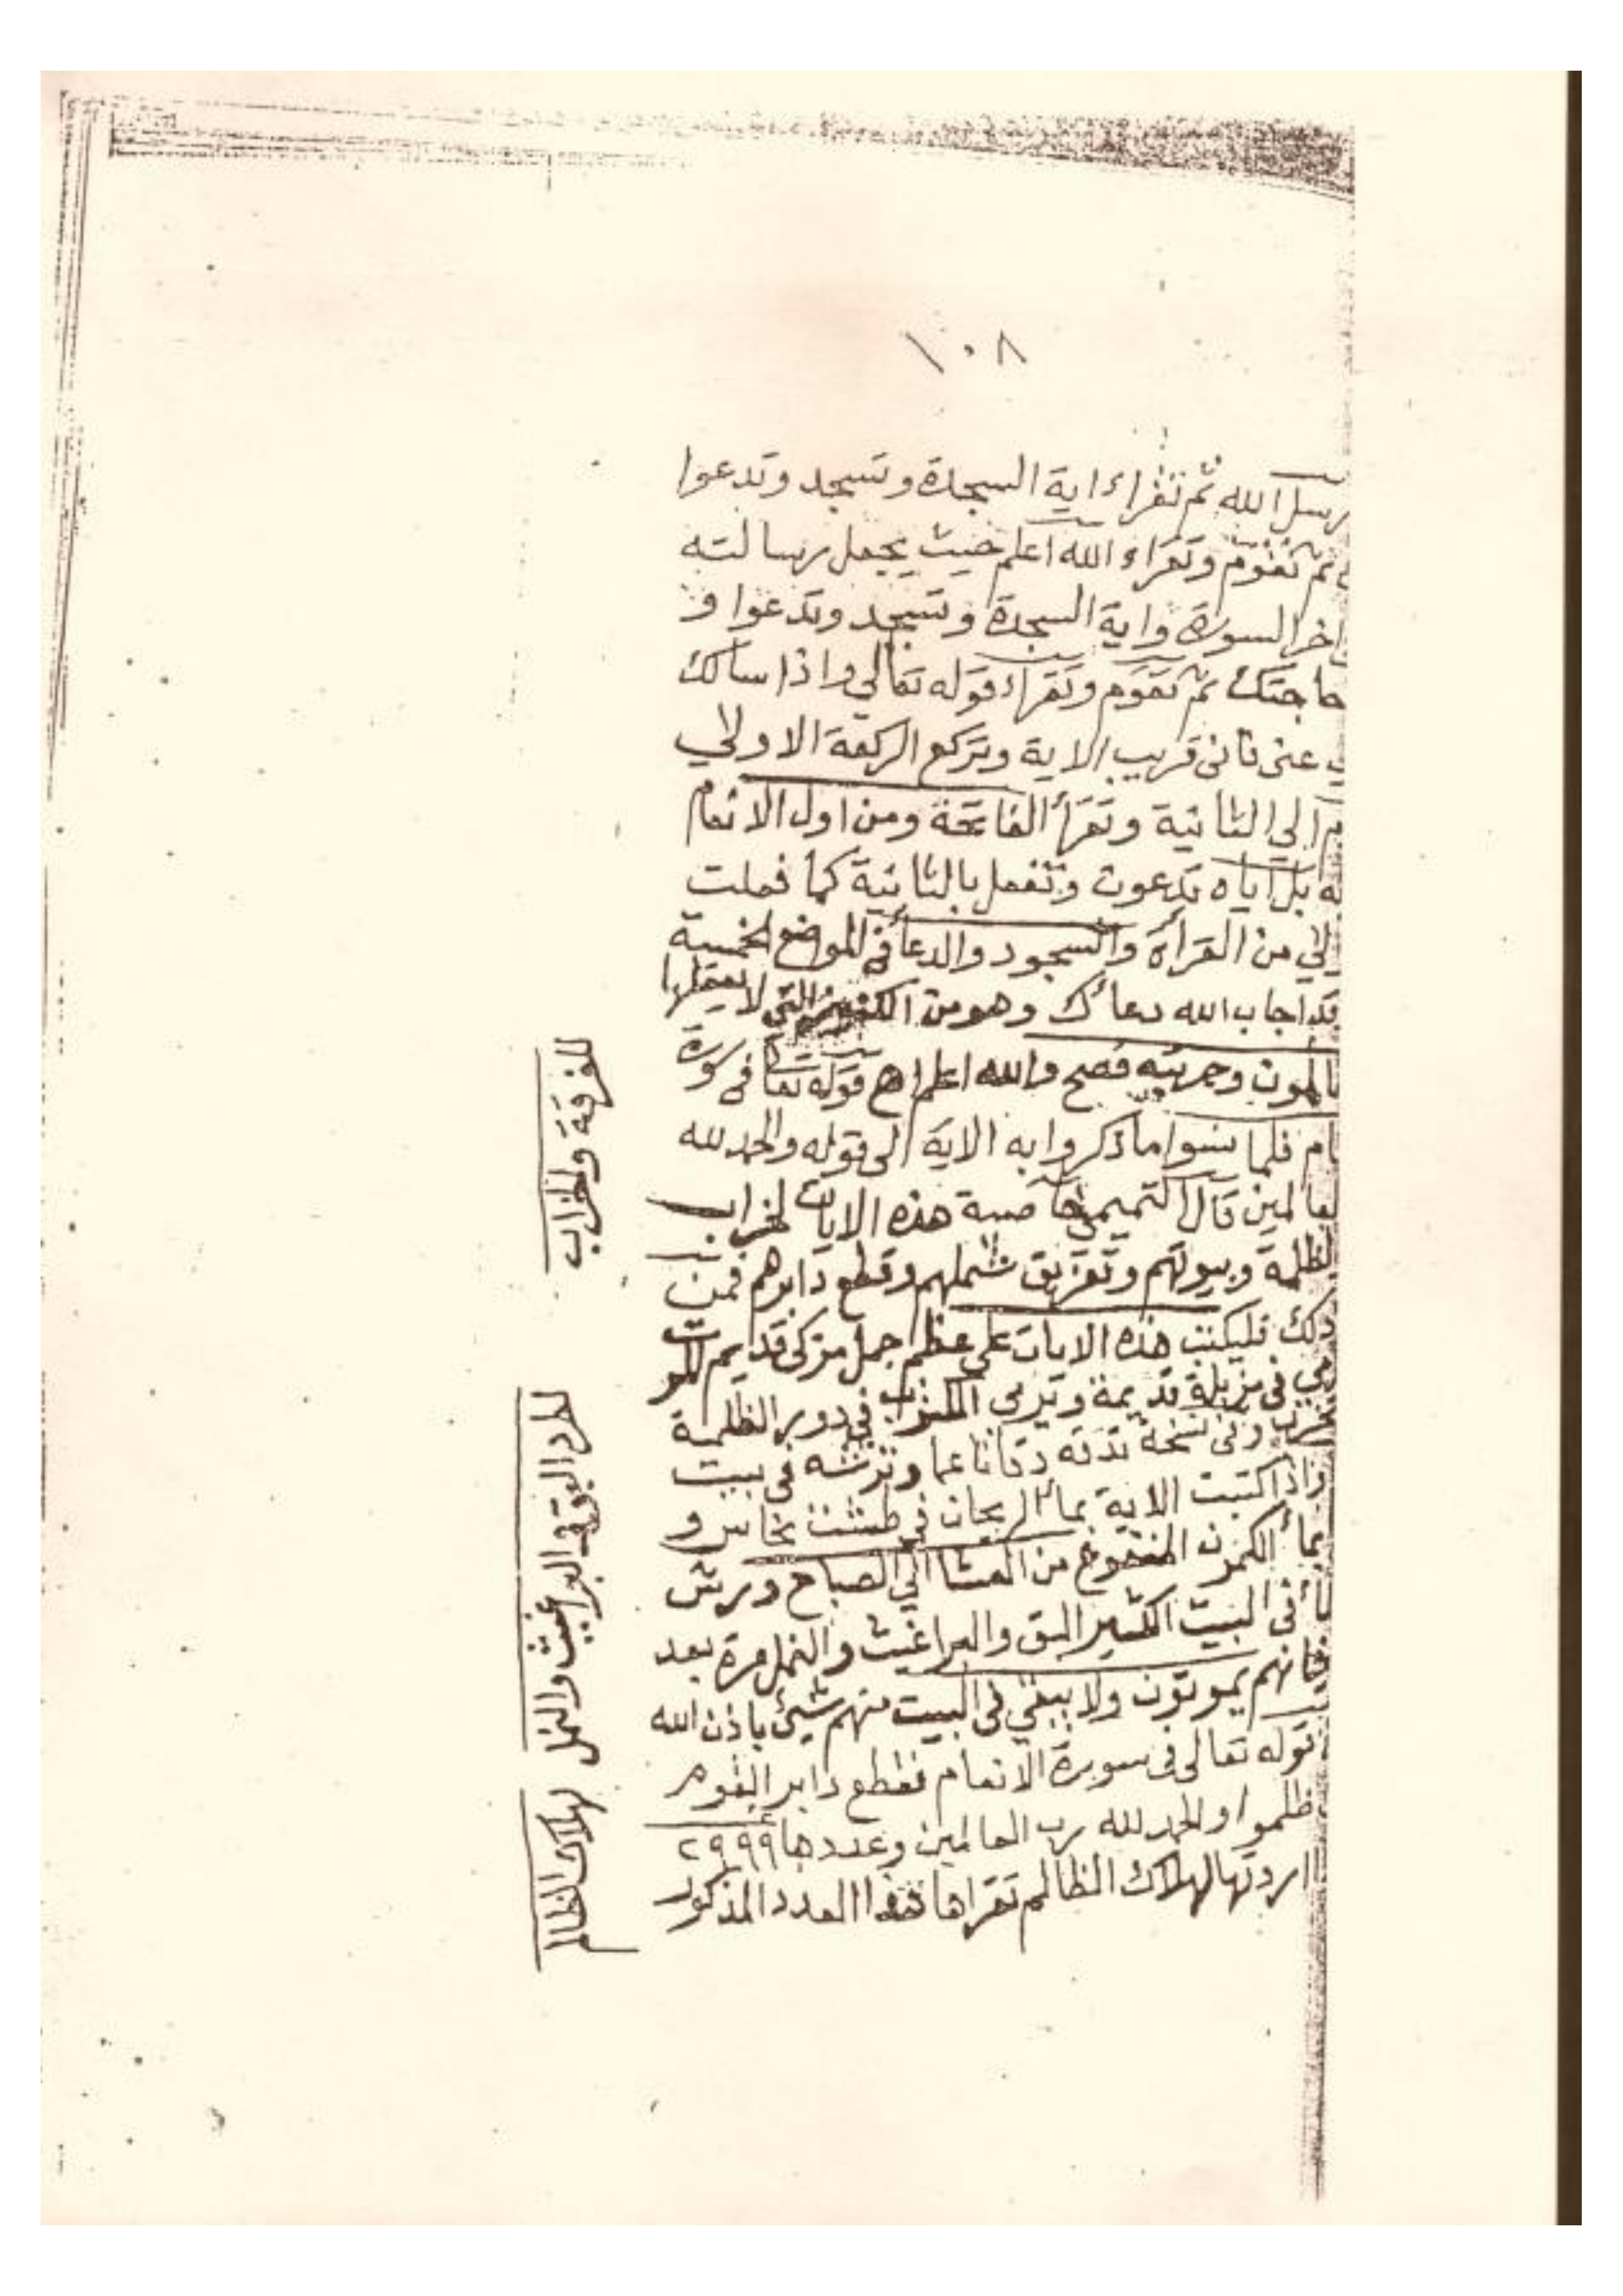 ١٠٨
رسل الله ثم تقراء اية السجدة وتسجد وتدعوا
ثم تقوم وتقراء الله اعلم حيث يجعل رسالته
اخر السورة واية السجدة وتسجد وتدعوا و
حاجتك ثم تقوم وتقراء قوله تعالى واذا سالك
عنى فانى قريب الاية وتركع الركعة الاولي
الي الثانية وتقرأ الفاتحة ومن اول الانعام
بل اياه تدعون وتفعل بالثانية كما فعلت
من القرأة والسجود والدعأ في المواضع الخمسة
قد اجاب الله دعائك وهو من الكنوز التي لا يعقلها
المون وجربته فصح والله اعلم اهـ قوله تعا فى سورة
ام فلما نسوا ما ذكروا به الاية الى قوله والحمد لله
لعالمين قال التميمي خاصية هذه الايات لخراب
لظلمة وبيوتهم وتفريق شملهم وقطع دابرهم فمن
ذلك فليكتب هذه الايات على عظم جمل مزكى قديم
فى مزبلة قديمة وترمى التراب في دور الظلمة
وفى نسخة تدقه دقا ناعما وترشه فى بيت
واذا كتبت الاية بمأ الريحان في طشت نحاس و
بمأ الكمون المنقوع من العشا الي الصباح ورش
فى البيت الكثير البق والبراغيث والنمل مرة بعد
فانهم يموتون ولا يبقي فى البيت منهم شيئ باذن الله
قوله تعالى فى سورة الانعام فقطع دابر القوم
ظلموا والحمد لله رب العالمين وعددها ٢٩٩٩
اردتها لهلاك الظالم تقراها هذا العدد المذكور
للفرقة والخراب
لطرد البق والبراغيث والنمل
لهلاك الظالم